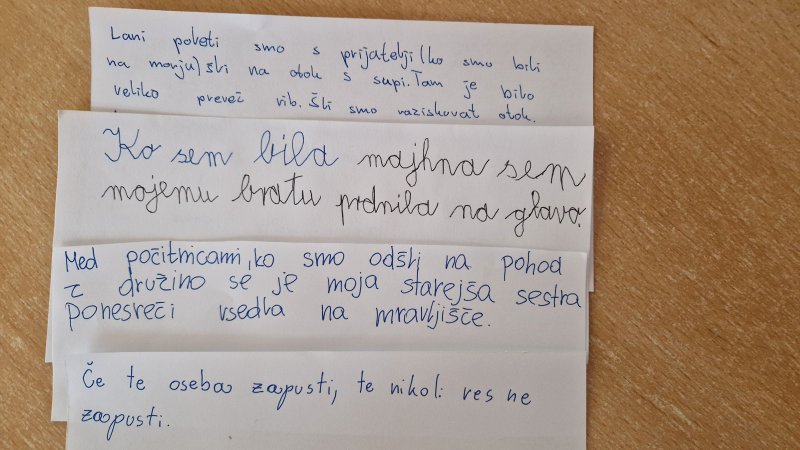 Lani poleti smo s prijatelji (ko smo bili
na morju) šli na otok s supi. Tam je bilo
veliko preveč rib. Šli smo raziskovat otok.
Ko sem bila majhna sem
mojemu bratu prdnila na glavo.
Med počitnicami, ko smo odšli na pohod
z družino se je moja starejša sestra
ponesreči vsedla na mravljišče.
Če te oseba zapusti, te nikoli res ne
zapusti.